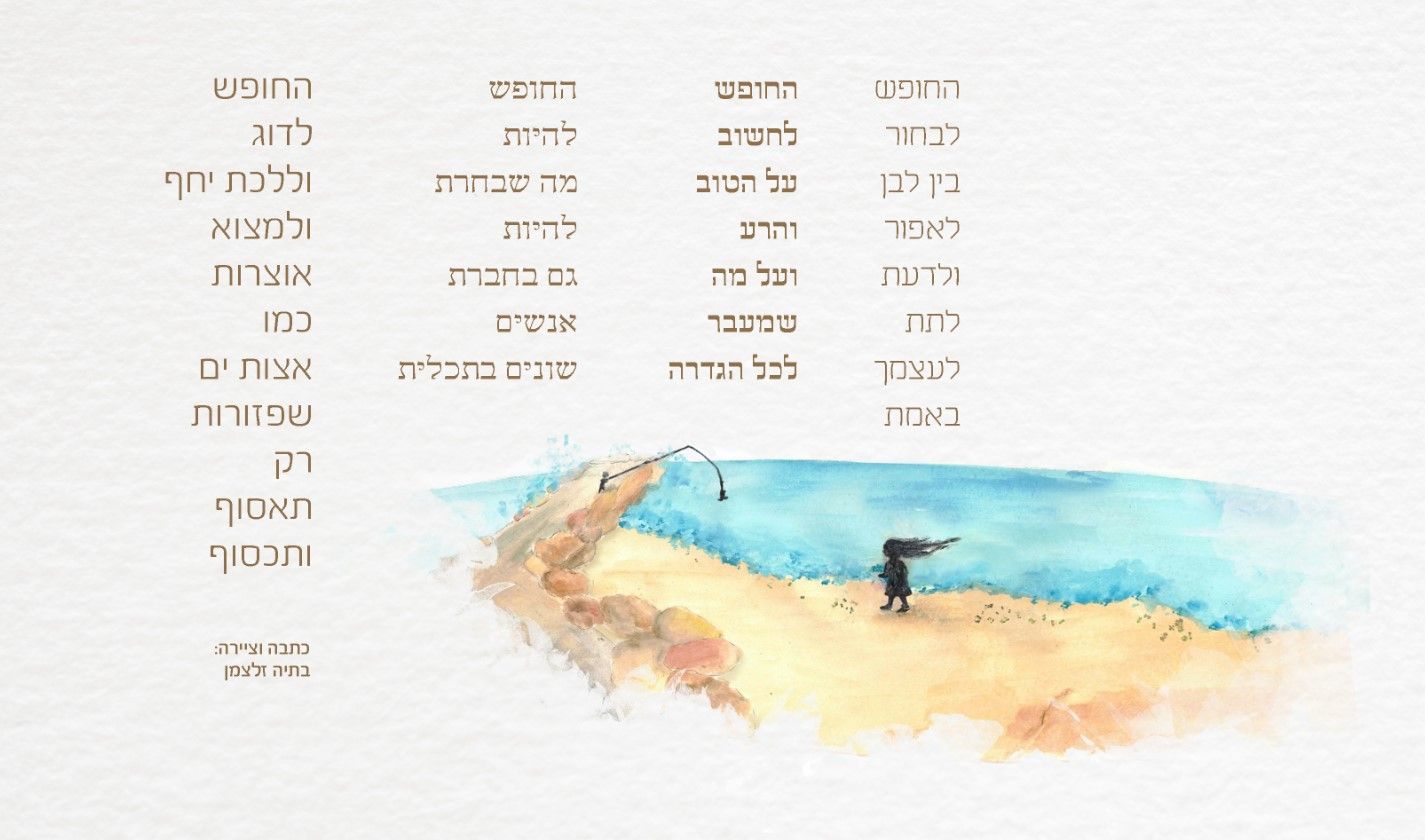 החופש
לבחור
בין לבן
לאפור
ולדעת
לתת
לעצמך
באמת
החופש
לחשוב
על הטוב
והרע
ועל מה
שמעבר
לכל הגדרה
החופש
להיות
מה שבחרת
להיות
גם בחברת
אנשים
שונים בתכלית
החופש
לדוג
וללכת יחף
ולמצוא
אוצרות
כמו
אצות ים
שפזורות
רק
תאסוף
ותכסוף
כתבה וציירה:
בתיה זלצמן